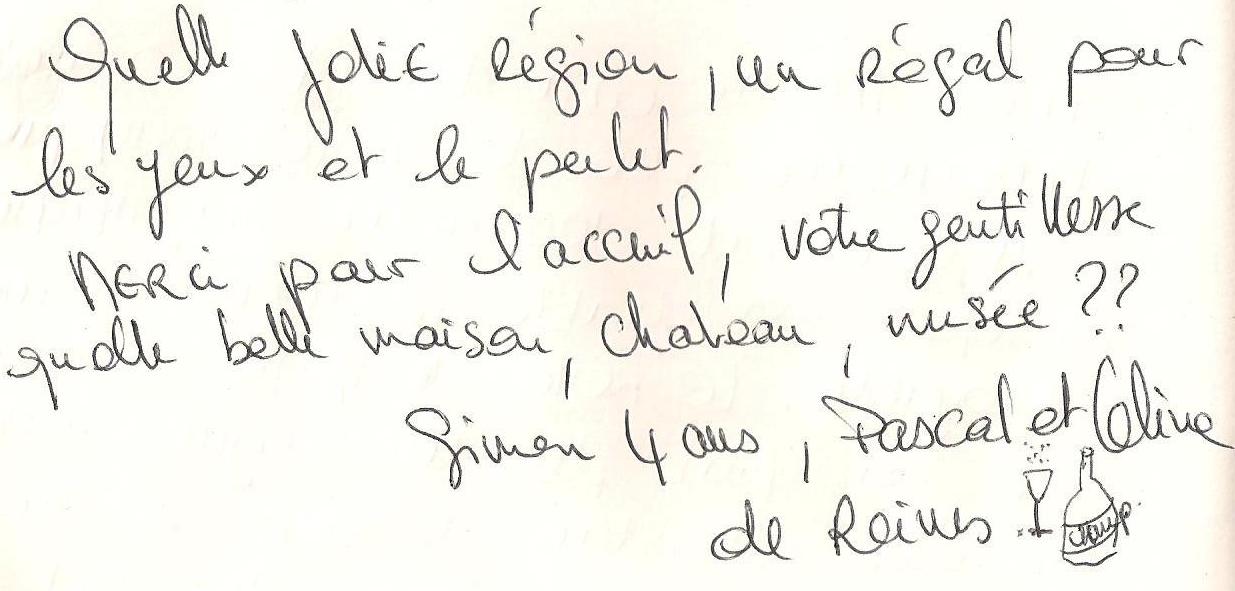 Quelle jolie région, un régal pour
les yeux et le palet.
MERCi pour l'acceuil, votre gentillesse
quelle belle maison, chateau, musée ??
Simon 4 ans, Pascal et Céline
de Reims
champ.